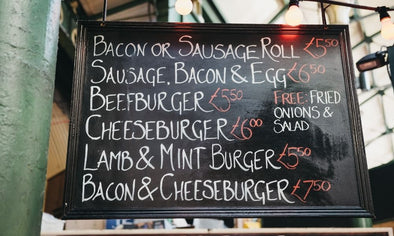 BACON OR SAUSAGE ROLL £5.50
SAUSAGE, BACON & EGG £6.50
BEEFBURGER £5.50
CHEESEBURGER £6.00
FREE: FRIED
ONIONS &
SALAD
LAMB & MINT BURGER £5.50
BACON & CHEESEBURGER £7.50